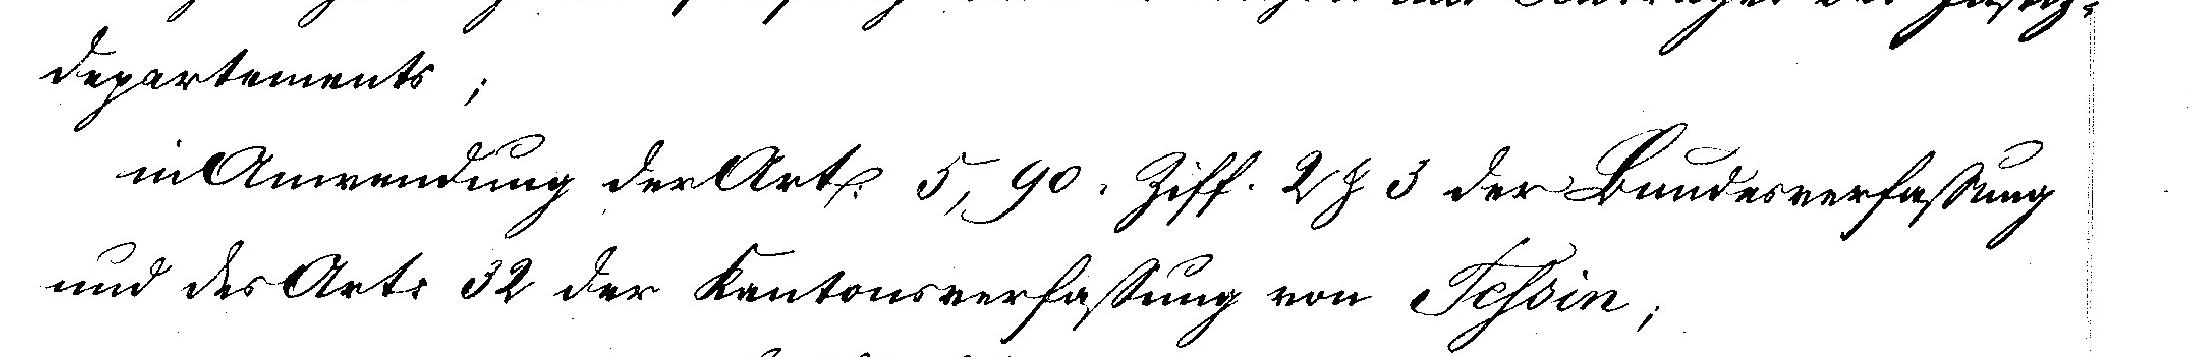 departements;
in Anwendung der Art. 5, 90. Ziff. 2 & 3 der Bundesverfassung
und des Art. 32 der Kantonsverfassung von Tessin,